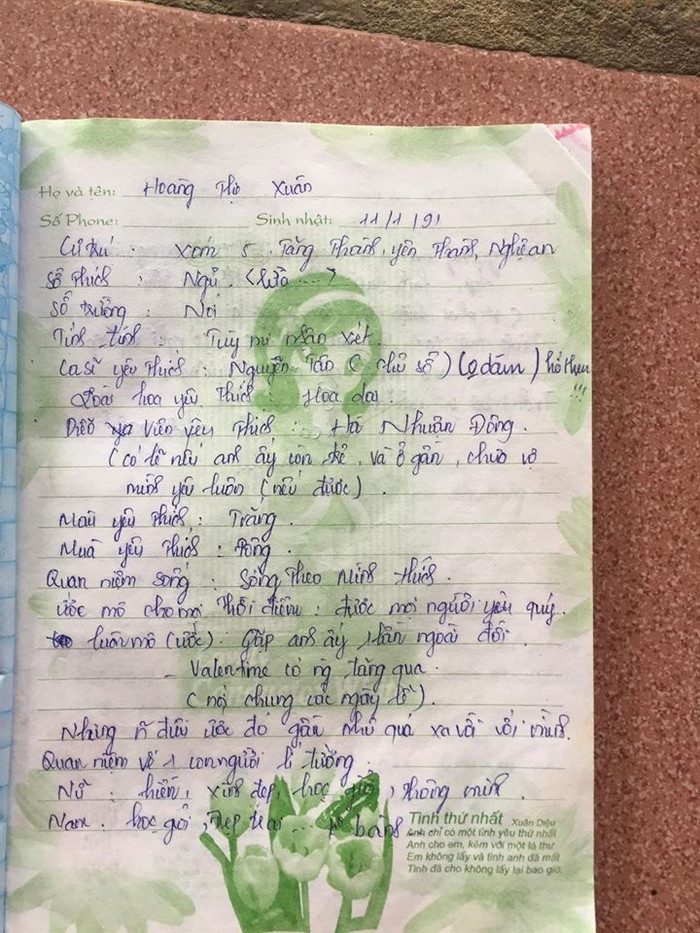 Họ và tên: Hoàng Thị Xuân
Số Phone: Sinh nhật: 11/1/91
Cư trú : xóm 5. Tăng Thành, yên Thành, Nghệ an
Sở thích : Ngủ. (lười ....)
Sở trường : Nói
Tính tình : Tùy mọi nhận xét.
Ca sĩ yêu thích : Nguyễn Tấn ( chủ số ) (o dám) hổ thẹn !!!
Loài hoa yêu thích : Hoa dại
Diễn viên yêu thích : Hà Nhuận Đông.
(có lẽ nếu anh ấy còn trẻ, và ở gần, chưa vợ
mình yêu luôn (nếu được).
Màu yêu thích : Trắng.
Mùa yêu thích : Đông.
Quan niệm sống : Sống theo mình thích.
ước mơ cho mọi thời điểm : được mọi người yêu quý.
luôn mơ (ước) : Gặp anh ấy 1 lần ngoài đời.
- Valentime có ng tặng quà.
( nói chung các ngày lễ ).
Nhưng n điều ước đó gần như quá xa vời với mình.
Quan niệm về 1 con người lí tưởng :
Nữ : hiền, xinh đẹp, học giỏi, thông minh.
Nam : học giỏi, đẹp trai ...
Tình thứ nhất Xuân Diệu
Anh chỉ có một tình yêu thứ nhất
Anh cho em, kèm với một lá thư
Em không lấy và tình anh đã mất
Tình đã cho không lấy lại bao giờ.